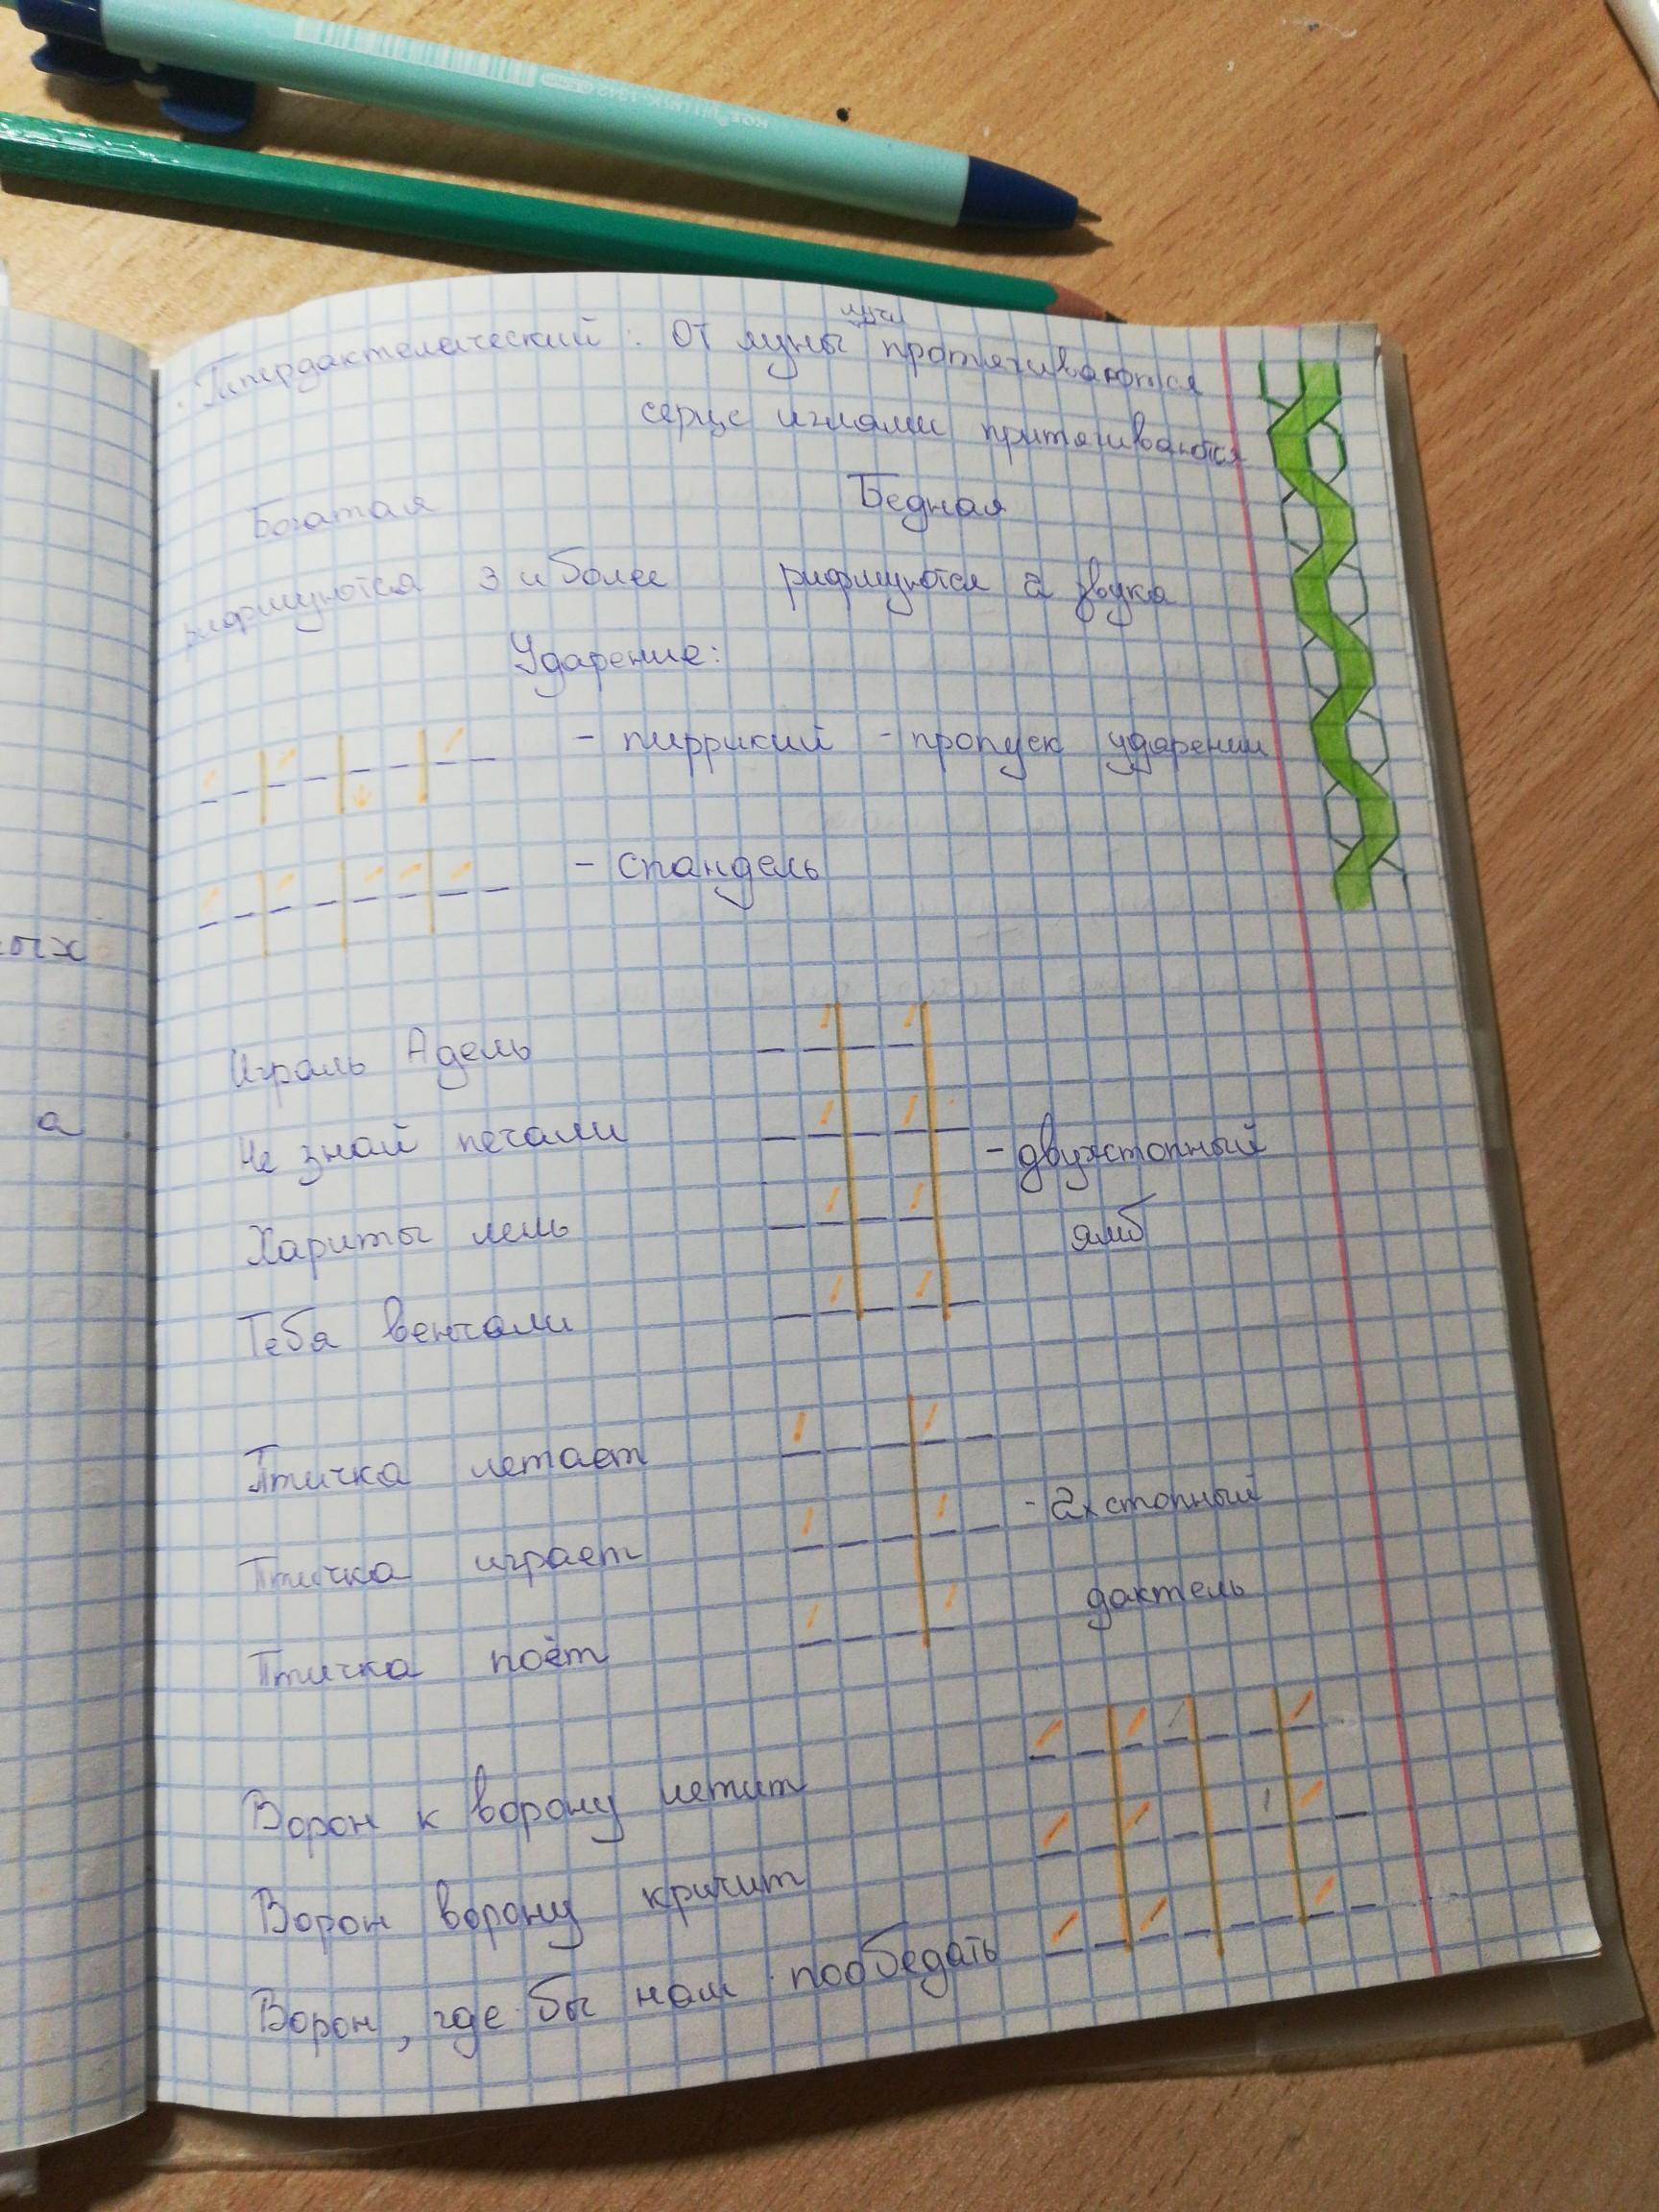 лучи
Гипердактелический: От луны протягиваются
сердце иглами притягиваются
Богатая Бедная
рифмуются 3 и более рифмуются 2 звука
Ударение:
- пиррикий - пропуск ударении
- спандель
ых
Играль Адель
а
Не знай печали
- двухстопный
Хариты лель
ямб
Тебя венчали
Птичка летает
- 2х стопный
Птичка играет
дактель
Птичка поёт
Ворон к ворону летит
Ворон ворону кричит
Ворон, где бы нам пообедать